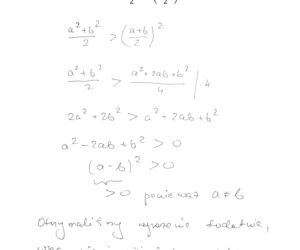 a²+b²/2 > (a+b/2)²
a²+b²/2 > a²+2ab+b²/4 | ·4
2a²+2b² > a²+2ab+b²
a²-2ab+b² > 0
(a-b)² > 0
>0 ponieważ a≠b
Otrzymaliśmy wyrażenie dodatnie,